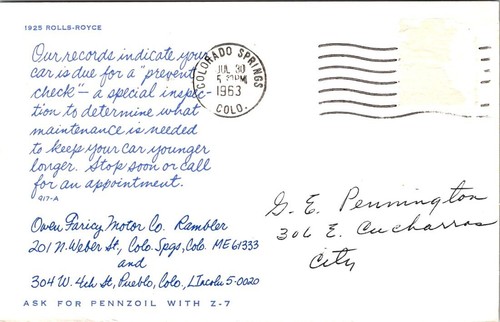 1925 ROLLS-ROYCE
Our records indicate your
car is due for a "prevent
check" - a special inspec-
tion to determine what
maintenance is needed
to keep your car younger
longer. Stop soon or call
for an appointment.
917-A
Owen Faricy Motor Co. Rambler
201 N. Weber St., Colo. Spgs, Colo. ME 61333
and
304 W. 4th St., Pueblo, Colo., LIncoln 5-0020
ASK FOR PENNZOIL WITH Z-7
COLORADO SPRINGS
JUL 30
PM
1963
COLO.
G. E. Pennington
306 E. Cucharras
City